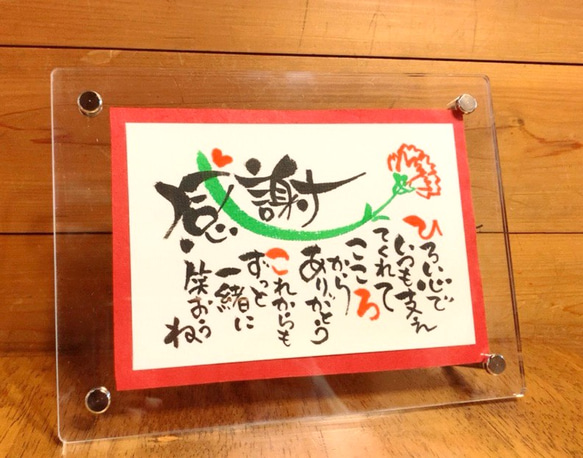 感謝
ひろい心で
いつも支え
てくれて
こころ
から
ありがとう
これからも
ずっと
一緒に
笑おう
ね